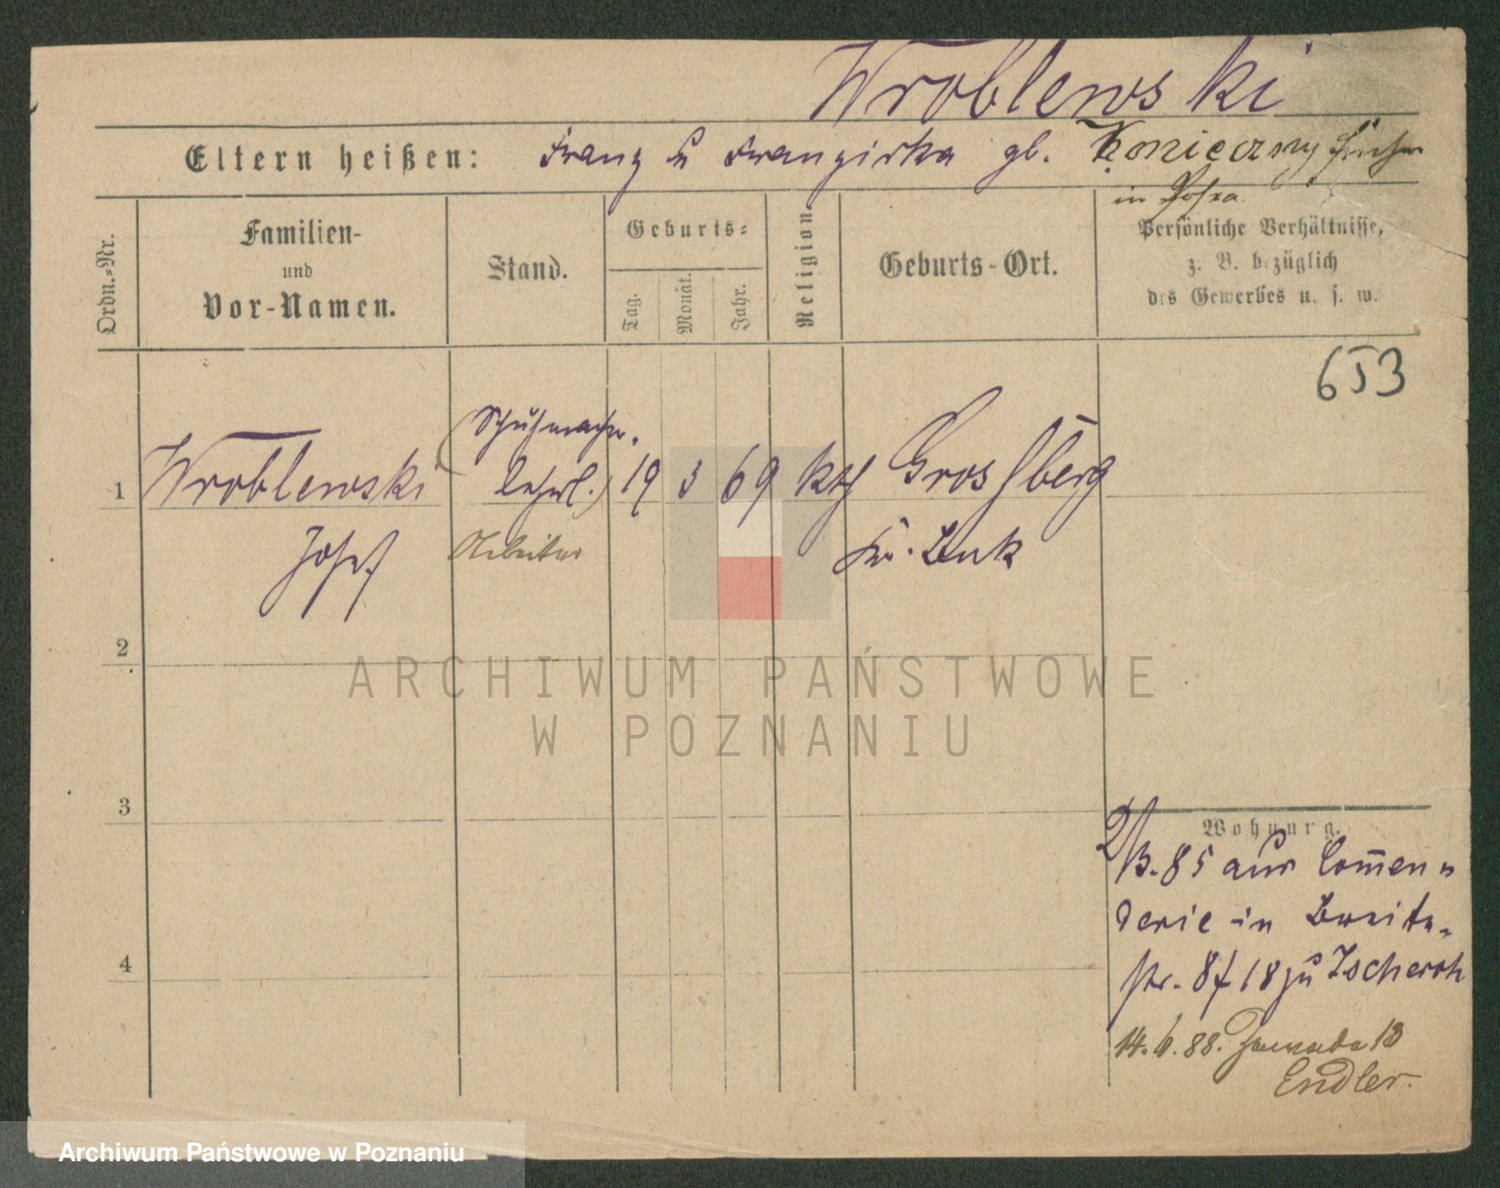 Wroblewski
Eltern heißen: Franz u Franziska gb. Konieczny früher
in Posen
Ordn.-Nr.
Familien-
und
Vor-Namen.
Stand.
Geburts-
Tag.
Monat.
Jahr.
Religion.
Geburts-Ort.
Persönliche Verhältnisse,
z. B. bezüglich
des Gewerbes u. s. w.
653
(Schuhmacher-
1 Wroblewski lehrl.) 19 3 69 kth
Josef Arbeiter Kr. Buk
2
3
4
Wohnung.
85 aus Commen-
derie in Breite-
str. 8f 18 zu Tscheroch
14. 6. 88. Zawade 13
Endler.
ARCHIWUM PAŃSTWOWE
W POZNANIU
Archiwum Państwowe w Poznaniu